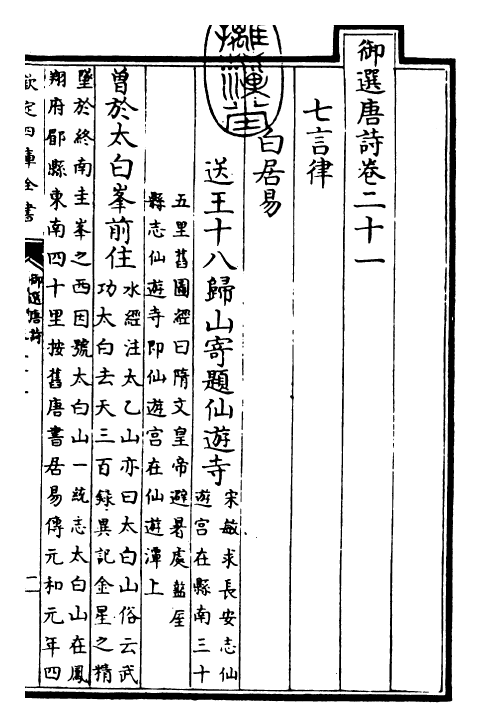 御選唐詩卷二十一
七言律
白居易
送王十八歸山寄題仙遊寺
宋敏求長安志仙
遊宮在縣南三十
五里舊圖經曰隋文皇帝避暑處盩厔
縣志仙遊寺即仙遊宮在仙遊潭上
曽於太白峯前住
水經注太乙山亦曰太白山俗云武
功太白去天三百録異記金星之精
墜於終南圭峯之西因號太白山一統志太白山在鳳
翔府郿縣東南四十里按舊唐書居易傳元和元年四
欽定四庫全書
御選唐詩